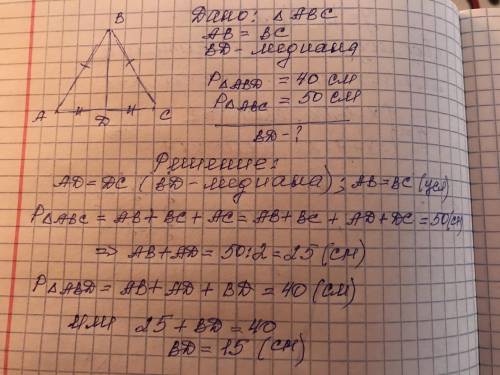 B
A
D
C
Дано: △ABC
AB = BC
BD - медиана
P△ABD = 40 см
P△ABC = 50 см
BD - ?
Решение:
AD = DC (BD - медиана); AB = BC (усл)
P△ABC = AB + BC + AC = AB + BC + AD + DC = 50 (см)
⇒ AB + AD = 50 : 2 = 25 (см)
P△ABD = AB + AD + BD = 40 (см)
или 25 + BD = 40
BD = 15 (см)